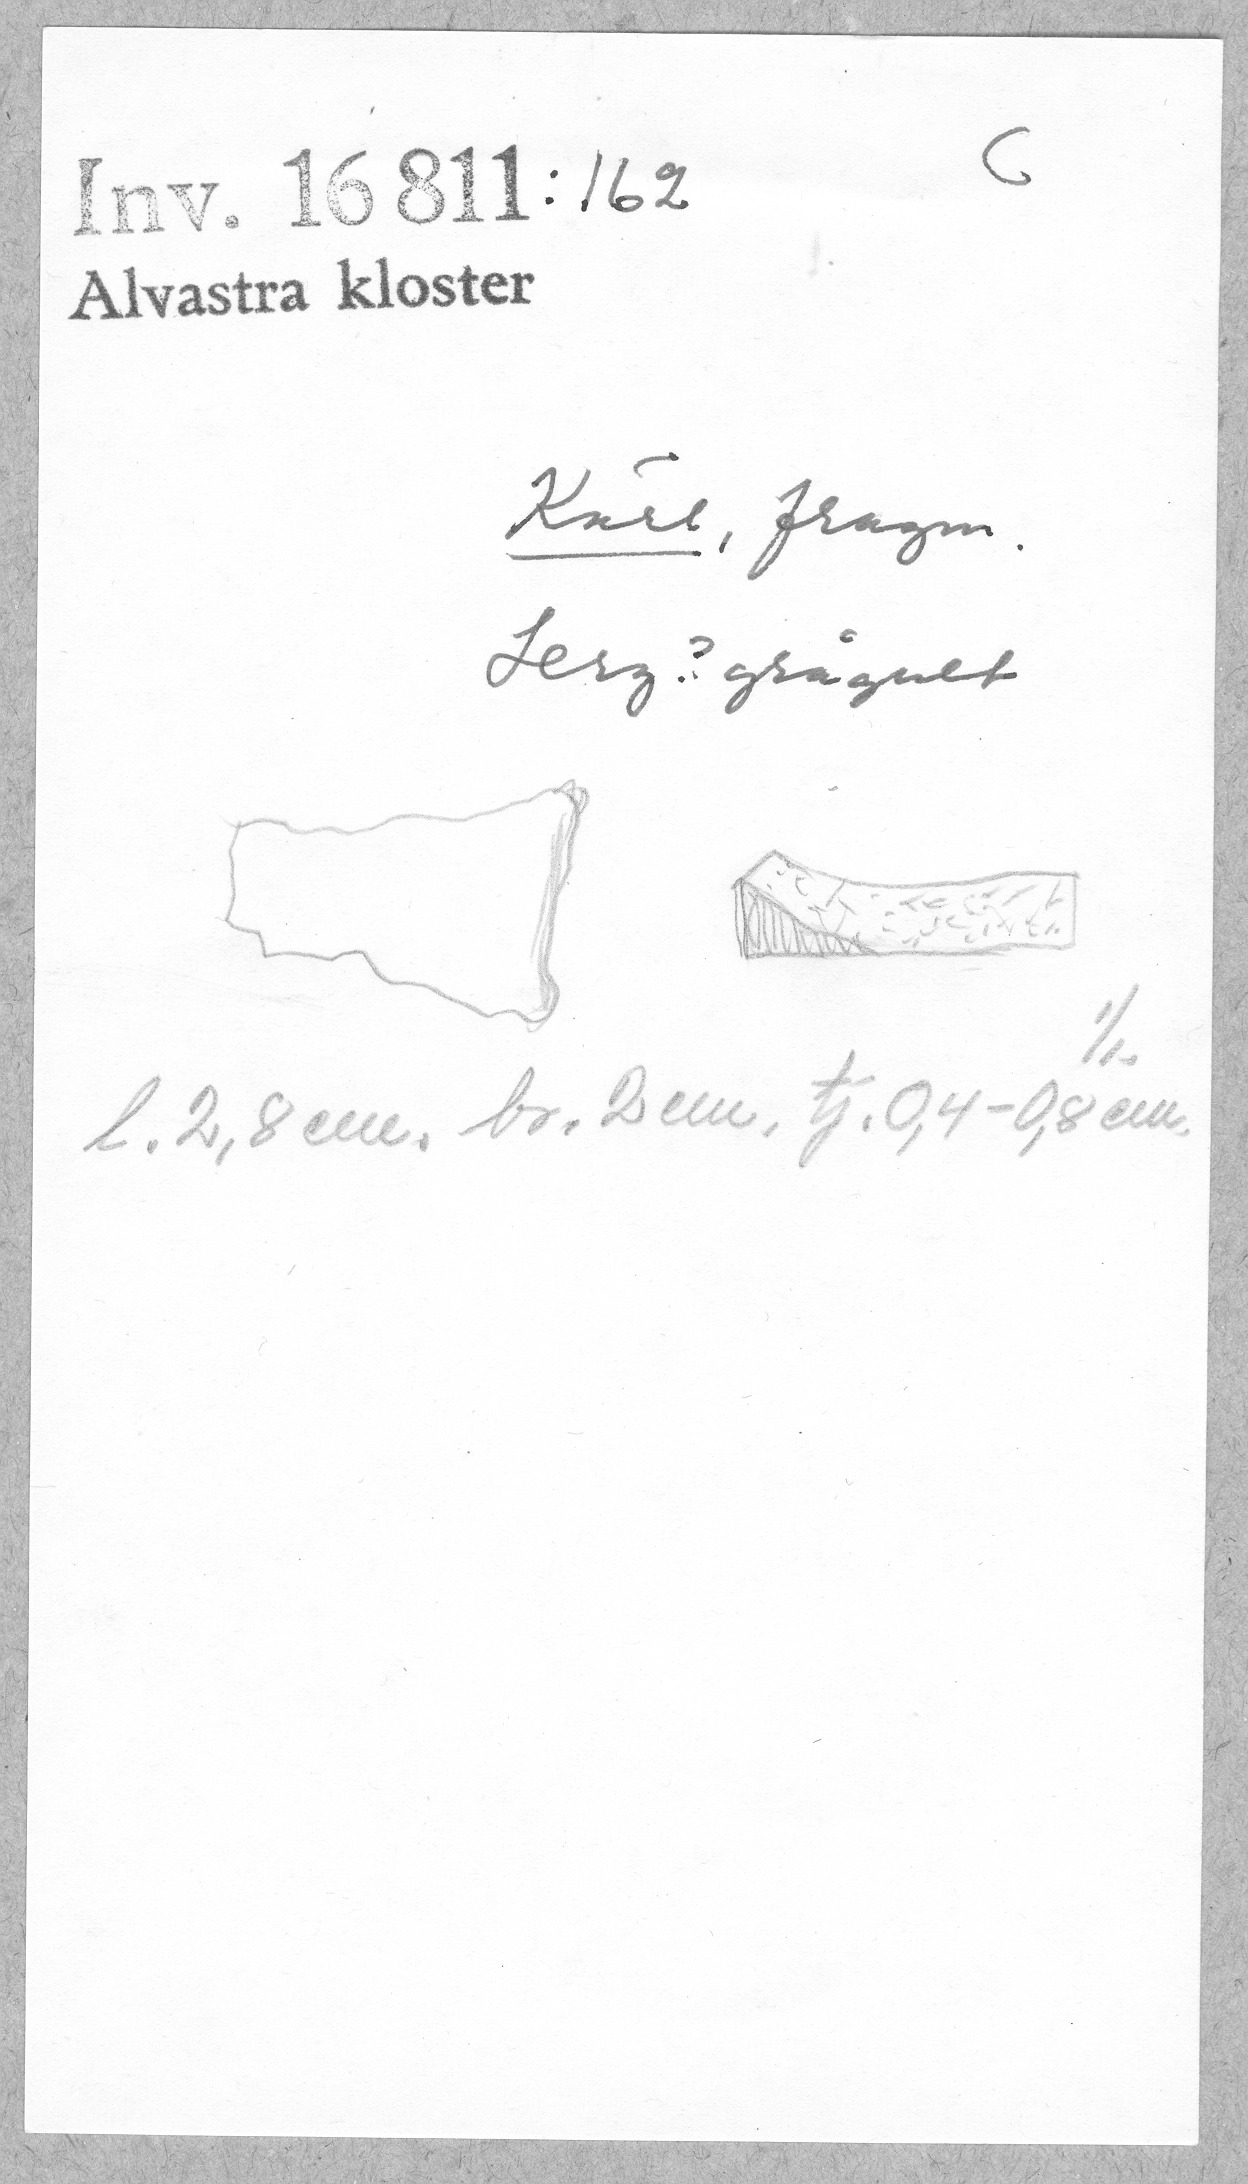 Inv. 16 811:162
C
Alvastra kloster
Kärl, fragm.
Lerg? grågult
1/1.
l. 2,8 cm. br. 2 cm. tj. 0,4-0,8 cm.